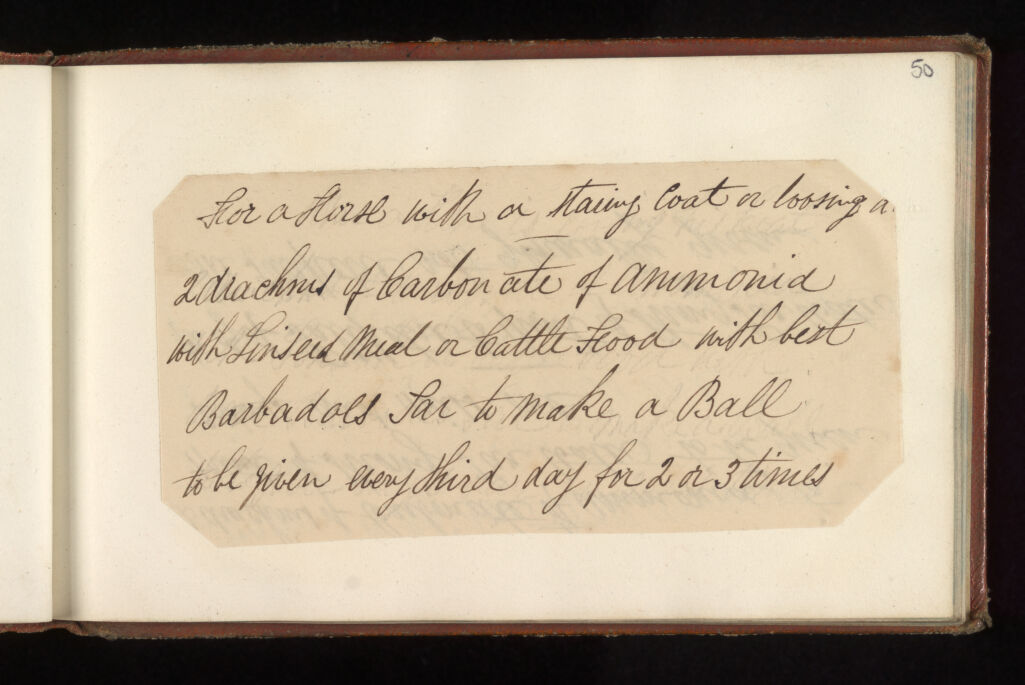 50
For a Horse with a staring Coat or loosing a
2 drachms of Carbonate of Ammonia
with Linseed Meal or Cattle Food with best
Barbadoes Tar to make a Ball
to be given every third day for 2 or 3 times